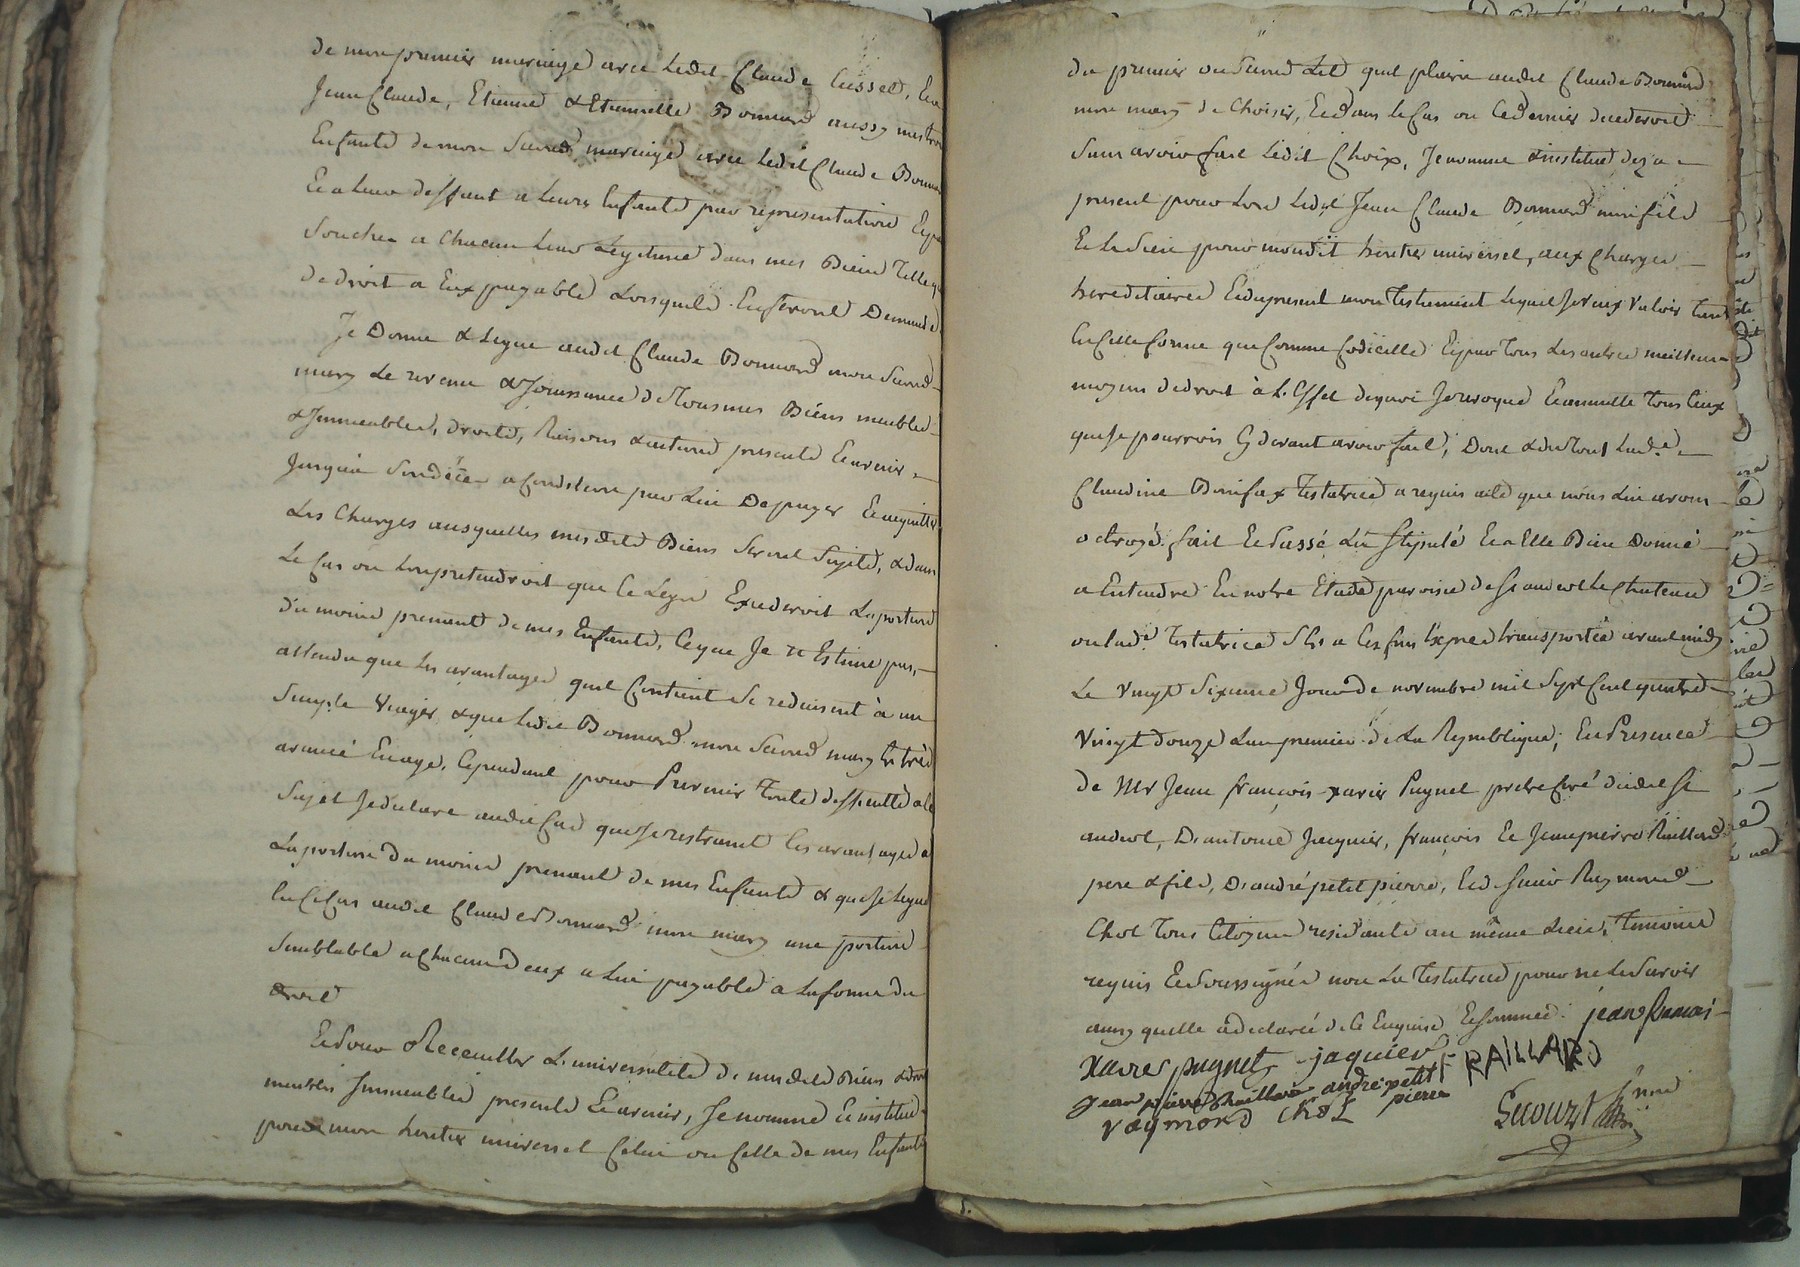 de mon premier mariage avec Ledit Claude Cusset, Ea
Jean Claude, Etienne & Etiennette Bonnard aussy mes trois
Enfants de mon second mariage avec Ledit Claude Bonnard
Ea Leur deffaut a Leurs Enfants par representation Epar
Souches a chacun Leur Legitime dans mes Biens Telle que
de droit a Eux payable Lorsquils En feront Demande
Je Donne & Legue audit Claude Bonnard mon second
mary Le revenu & Jouissance de Tous mes Biens meubles
& Immeubles, droits, Raisons & actions presents Eavenir
Jusqua Son décès a Condition par Lui De payer Eacquitter
Les Charges ausquelles mesdits Biens Seront Sujets, & dans
Le Cas ou Lon pretendroit que Ce Legs Excederoit La portion
du moins prenant de mes Enfants, Ceque Je n'Estime pas,
attendu que Les avantages quil Contient Se reduisent à un
Simple viager & que Ledit Bonnard mon Second mary Est très
avancé Enage, Cependant pour Prevenir Toute difficulté a ce
Sujet Je declare audit Cas que Je restraint Les avantages a
La portion du moins prenant de mes Enfants & que Je Legue
En ce Cas audit Claude Bonnard mon mary une portion
Semblable a Chacun d'eux a Lui payable a La forme du
droit
Et Pour Receuillir L'universalité de mesdits Biens & droits
meubles Immeubles presents Eavenir, Je nomme Einstitue
pour mon heritier universel Celui ou Celle de mes Enfants
du premier ou Second Lit quil plaira audit Claude Bonnard
mon mary de Choisir, Et dans le Cas ou Ce dernier decederoit
Sans avoir fait Ledit Choix, Je nomme & institue deza
present pour Lors Ledit Jean Claude Bonnard mon fils
Et Le Sien pour mondit heritier universel, aux Charges
hereditaires Et du present mon Testament Lequel Je veux valoir tant
En Cette forme que Comme Codicille Epar Tous Les autres meilleurs
moyens de droit à L'Effet de quoi Je revoque Eannulle Tous Ceux
que Je pourrois Cy devant avoir fait, Dont & du Tout Lade
Claudine Bonifax Testatrice a requis acte que nous Lui avons
octroyé. fait Et Passé Lû Stipulé Ea Elle Bien Donné
a Entendre En notre Etude paroisse de St andeol Le Chateau
ou Lade Testatrice S'Est a Ces fins Exprès transportée avant midy
Le vingt Sixieme Jour de novembre mil Sept Cent quatre
vingt douze L'an premier de La Republique, En Presence
de Mr Jean françois xavier Pugnet pretre Curé dudit St
andeol, D. antoine Jaquier, françois Et Jean pierre Raillard
pere & fils, D. andré petit pierre, Et de Raymond
Chol Tous Citoyens residants au même Lieu, Temoins
requis Et Soussignés non La Testatrice pour ne Le Savoir
ainsy quelle a declaré de Ce Enquise Et Sommée. jean francois
xavier pugnet jaquier F RAILLARD
jean pierre Raillard andre petit
raymond chol pierre